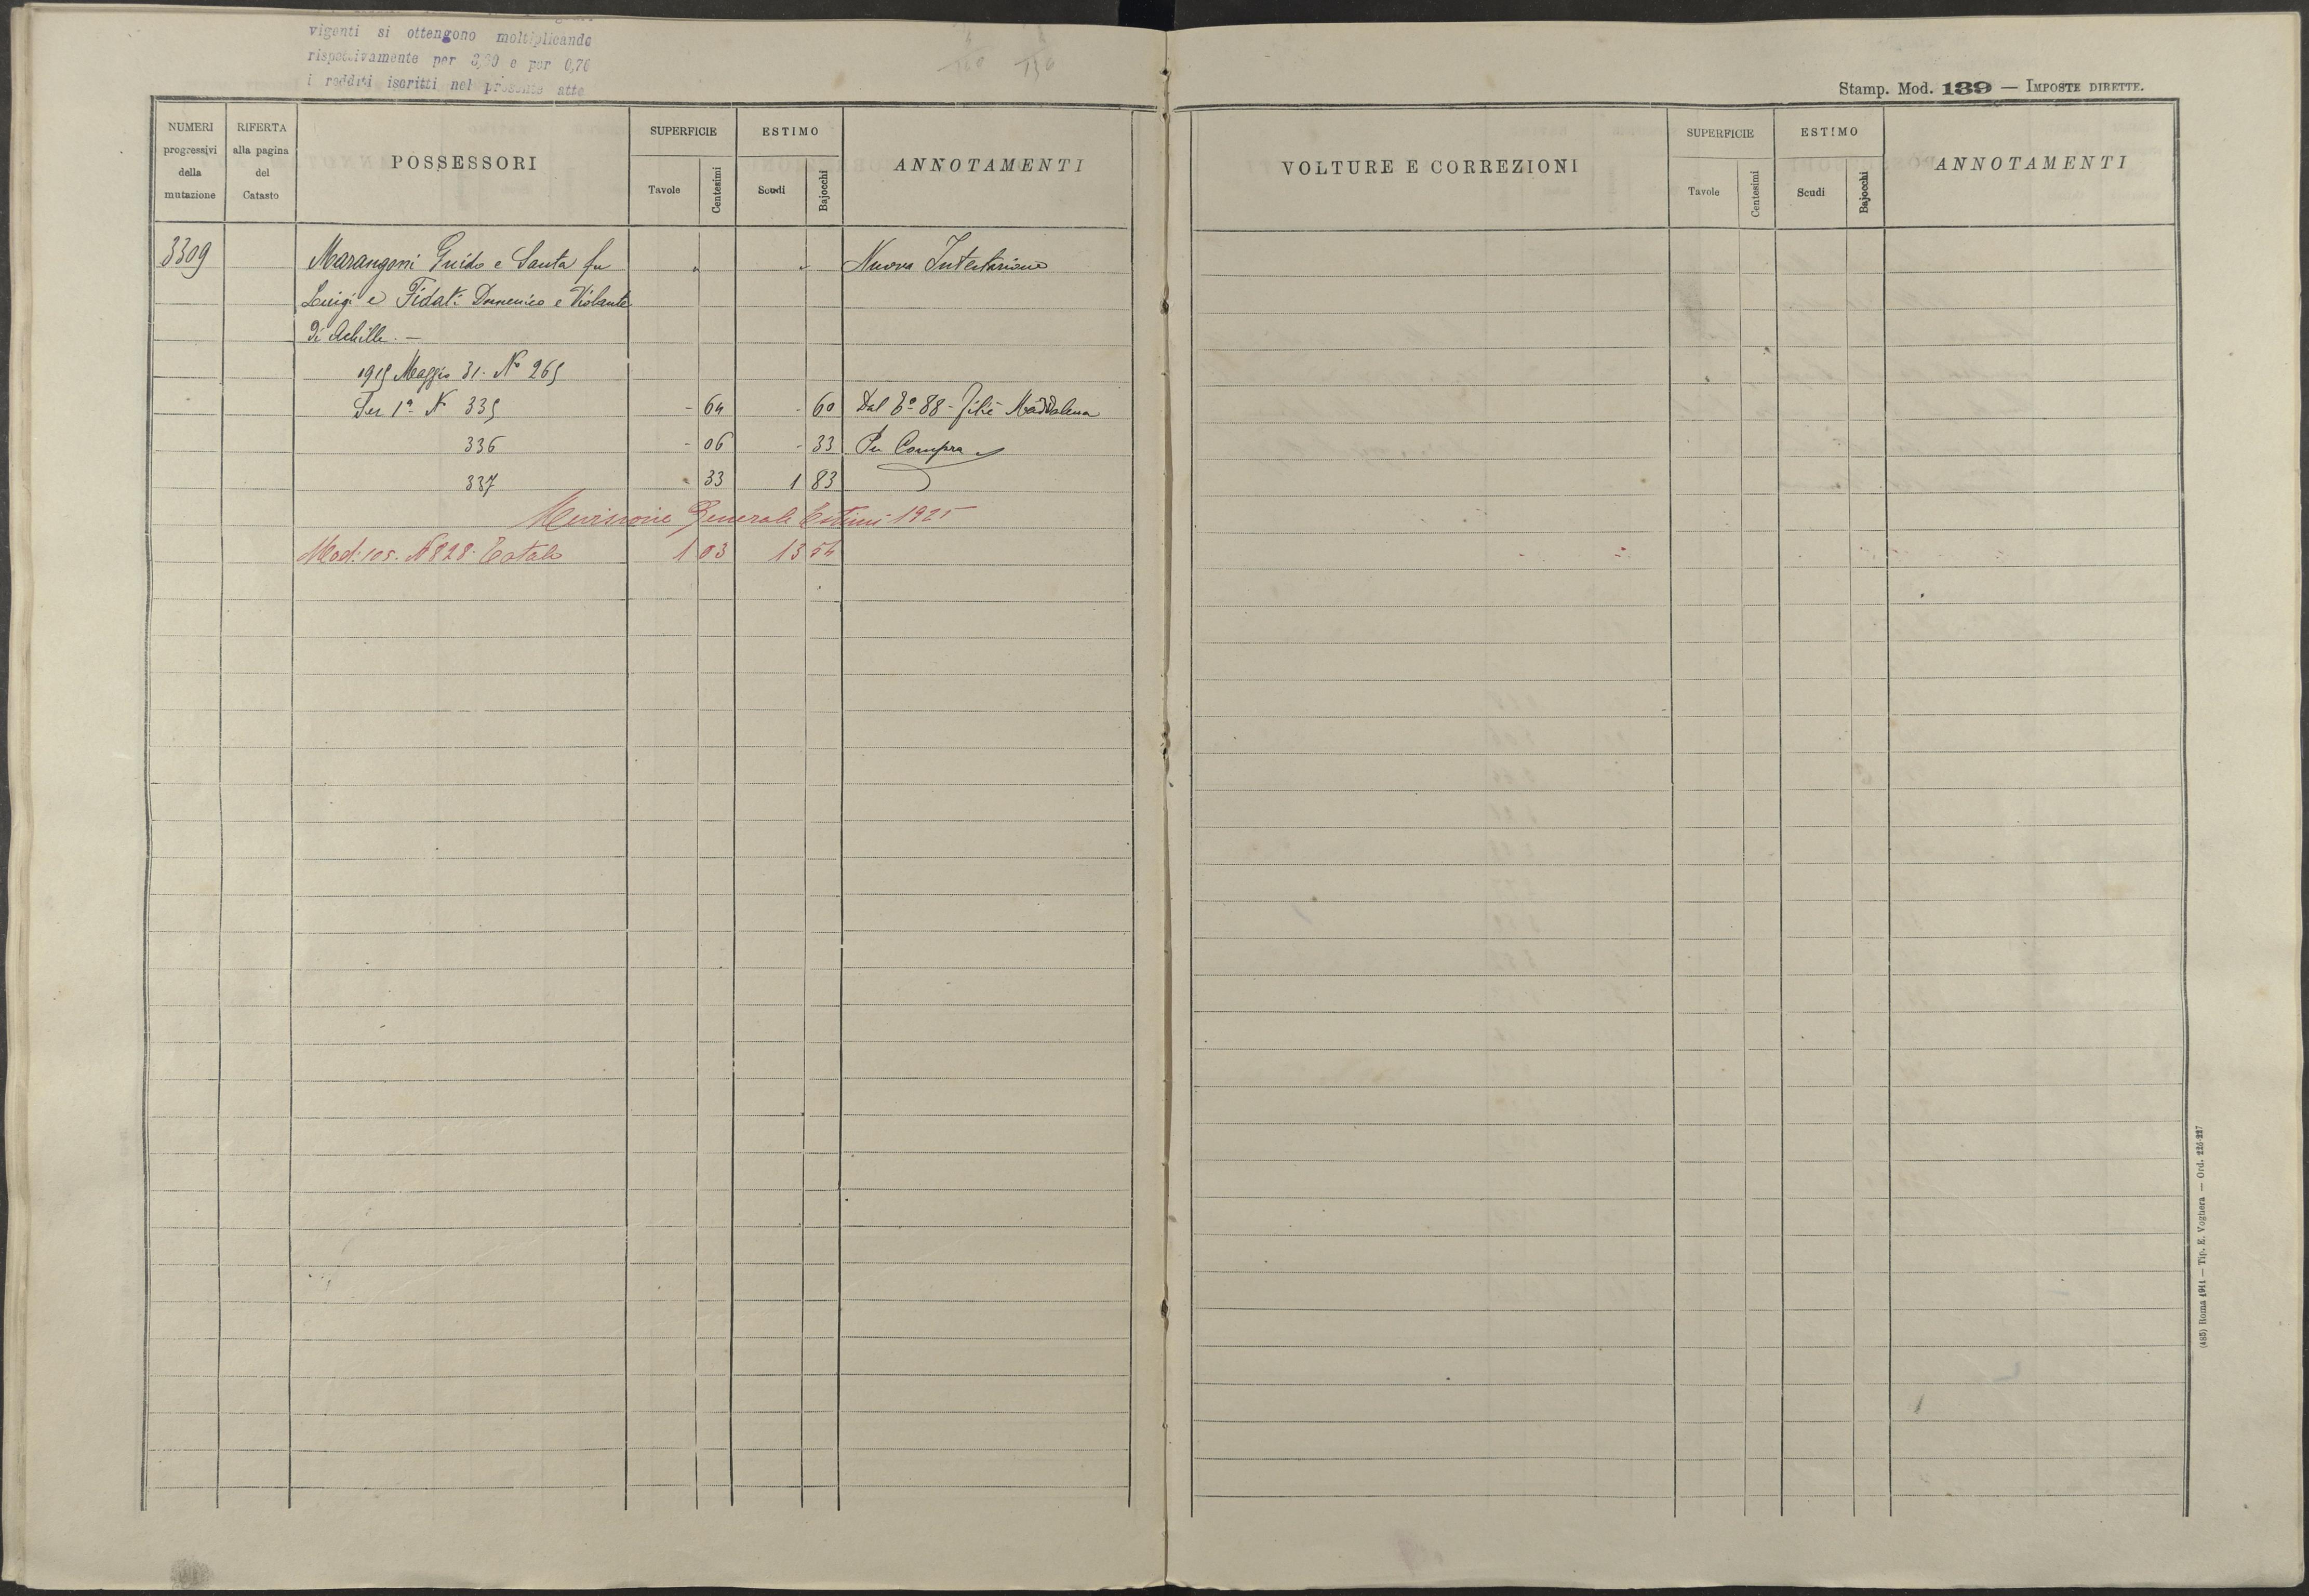 vigenti si ottengono moltiplicando
rispettivamente per 3,30 e per 0,76
i redditi iscritti nel presente atto
Stamp. Mod. 139 — IMPOSTE DIRETTE.
NUMERI progressivi della mutazione
RIFERTA alla pagina del Catasto
POSSESSORI
SUPERFICIE
Tavole
Centesimi
ESTIMO
Scudi
Bajocchi
ANNOTAMENTI
VOLTURE E CORREZIONI
SUPERFICIE
Tavole
Centesimi
ESTIMO
Scudi
Bajocchi
ANNOTAMENTI
3309 Marangoni Guido e Santa fu " " Nuova Intestazione
Luigi e Fidati Domenico e Violante
di Achille. —
1915 Maggio 31. No 265
Sez 1a N 335 - 64 - 60 Dal 88 - Maddalena
336 - 06 - 33 Per Compra
337 - 33 1 83
Revisione Generale Estimi 1925
Mod: 105. N 828. Totale 1 03 13 54
(485) Roma 1911 — Tip. E. Voghera — Ord. 226-227